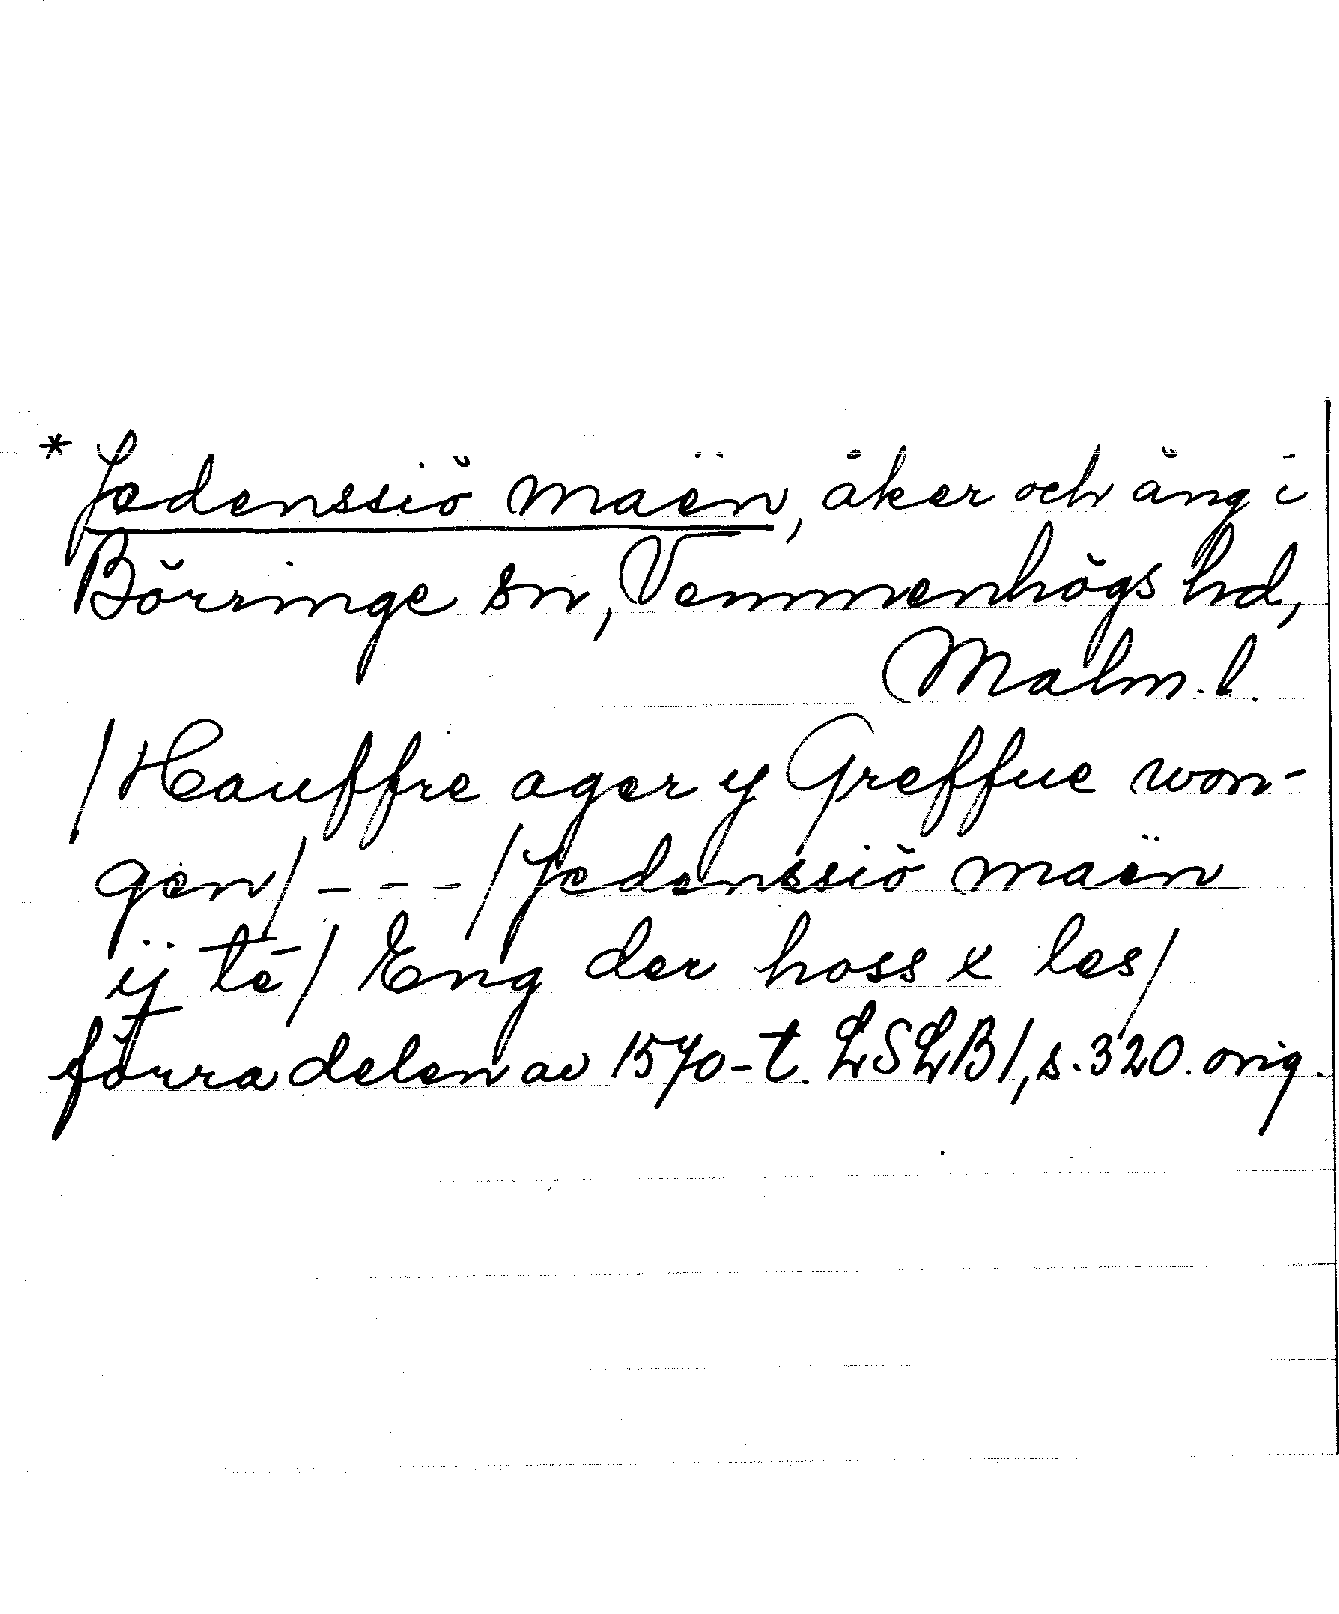 * Jedenssiö maën, åker och äng i
Börringe sn, Vemmenhögs hd,
Malm. l.
/Hauffre ager y Greffue won-
gen/ - - - /Jedenssiö maën
ÿ té/ Eng der hoss x les/
förra delen av 1570-t. LSLB1, s. 320. orig.